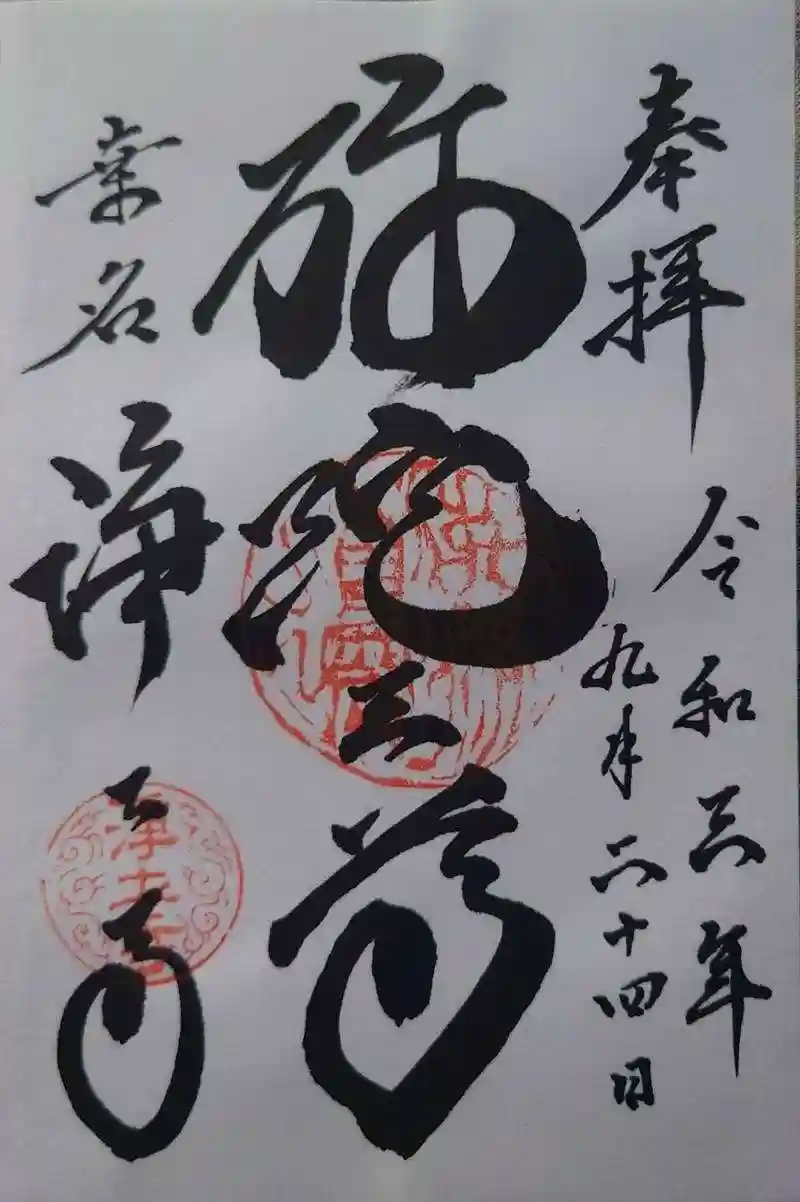 奉拝
令和三年
九月二十四日
弥陀三尊
桑名
浄土寺
浄土寺